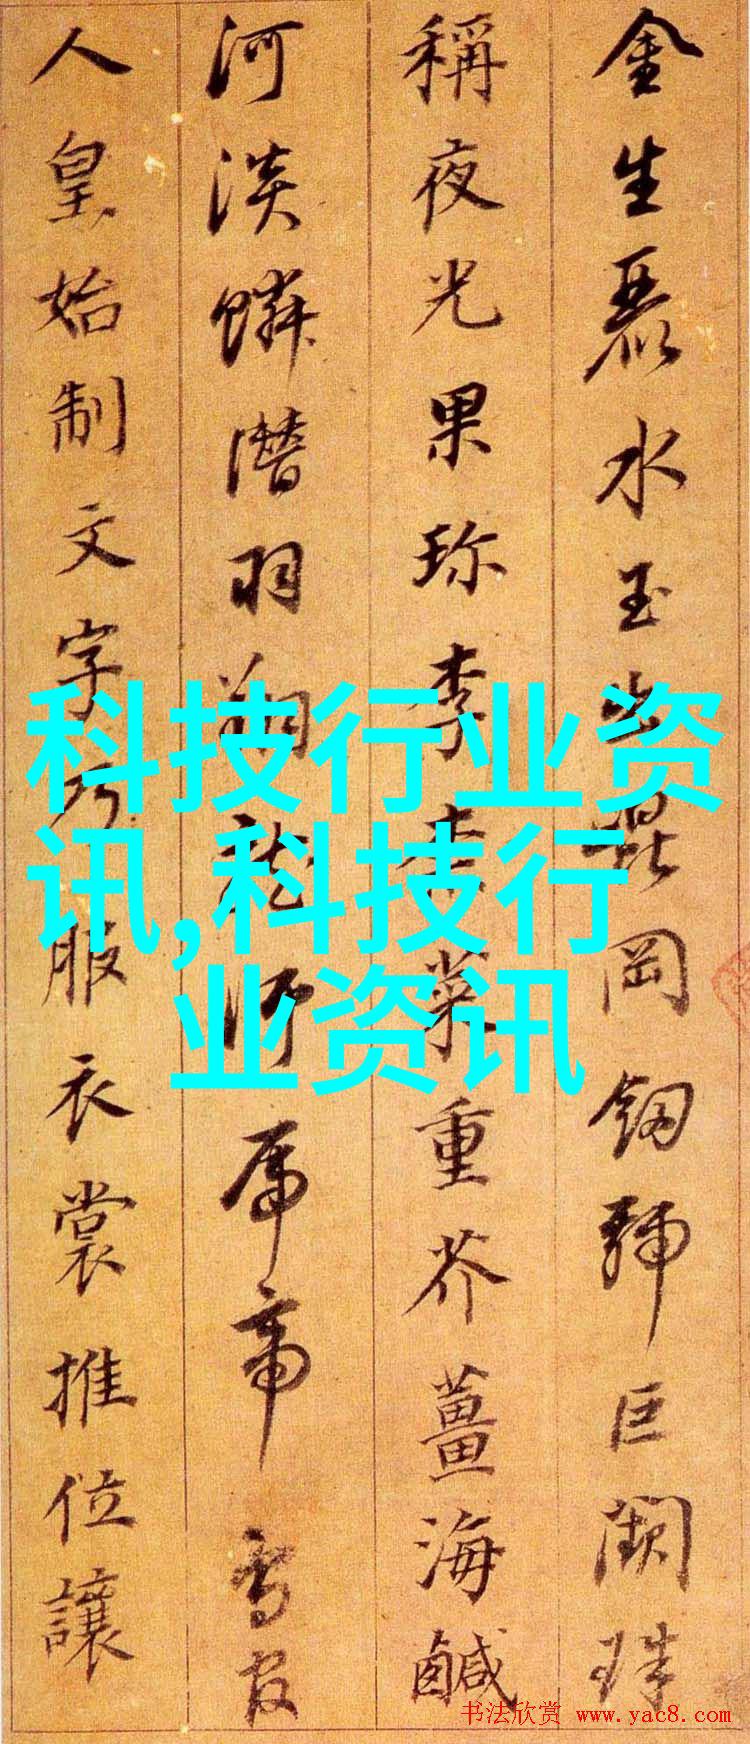 金生麗水玉出崑岡劒號巨闕珠
稱夜光果珍李柰菜重芥薑海鹹
河淡鱗潛羽翔龍師帝鳥官
人皇始制文字乃服衣裳推位讓
科技行业资
讯,科技行
业资讯
书法欣赏 www.yac8.com